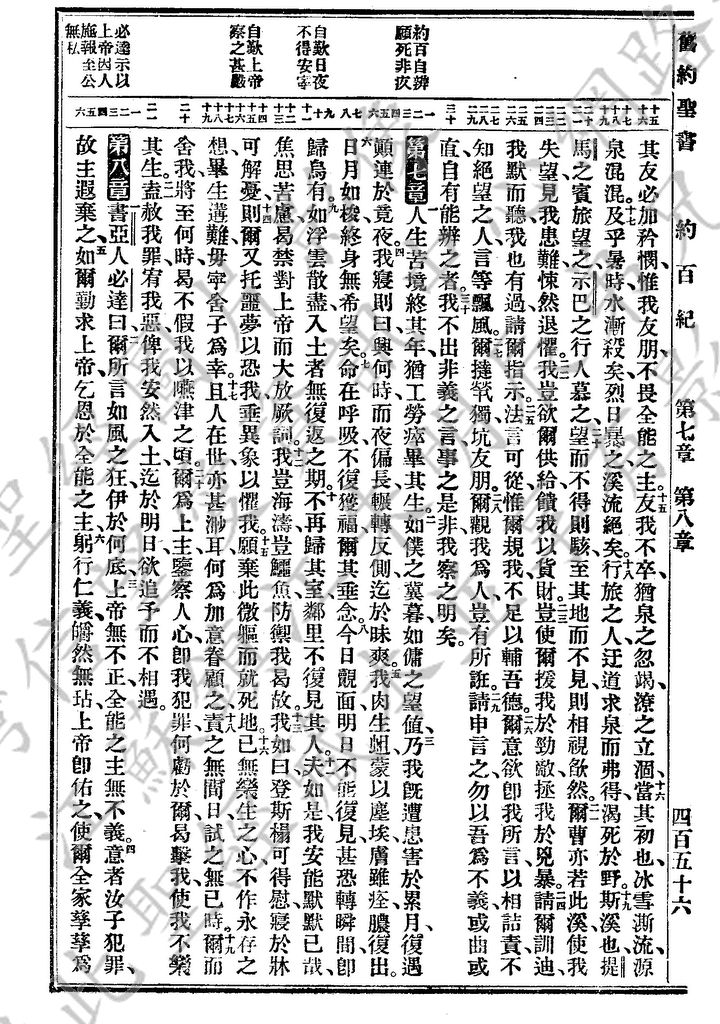 舊約聖書 約百紀 第七章 第八章 四百五十六
約百自辨
願死非疚
自歎日夜
不得安寧
自歎上帝
察之甚嚴
必達示以
上帝因人
施報至公
無私
其友必加矜憫惟我友朋不畏全能之主友我不卒猶泉之忽竭潦之立涸當其初也冰雪澌流源
泉混混及乎暑時水漸殺矣烈日暴之溪流絕矣行旅之人迂道求泉而弗得渴死於野斯溪也提
馬之賓旅望之示巴之行人慕之望而不得則駭至其地而不見則相視飲然爾曹亦若此溪使我
失望見我患難悚然退懼我豈欲爾供給饋我以貨財豈使爾援我於勁敵拯我於兇暴請爾訓迪
我默而聽我也有過請爾指示法言可從惟爾規我不足以輔吾德爾意欲卽我所言以相詰責不
知絕望之人言等飄風爾撻煢獨坑友朋爾觀我爲人豈有所誑請申言之勿以吾爲不義或曲或
直自有能辨之者我不出非義之言事之是非我察之明矣
第七章 人生苦境終其年猶工勞瘁畢其生如僕之冀暮如傭之望値乃我旣遭患害於累月復遇
顚連於竟夜我寢則曰興何時而夜偏長輾轉反側迄於昧爽我肉生蛆蒙以塵埃膚雖痊膿復出
日月如梭終身無希望矣命在呼吸不復獲福爾其垂念今日覿面明日不能復見甚恐轉瞬間卽
歸烏有如浮雲散盡入土者無復返之期不再歸其室鄰里不復見其人夫如是我安能默默已哉
焦思苦慮曷禁對上帝而大放厥詞我豈海濤豈鱷魚防禦我曷故我如曰登斯榻可得慰寢於牀
可解憂則爾又托噩夢以恐我垂異象以懼我願棄此微軀而就死地已無樂生之心不作永存之
想畢生遘難毋寧舍子爲幸且人在世亦甚渺耳何爲加意眷顧之責之無間日試之無已時爾而
舍我將至何時曷不假我以嚥津之頃爾爲上主鑒察人心卽我犯罪何虧於爾曷擊我使我不樂
其生盍赦我罪宥我惡俾我安然入土迄於明日欲追予而不相遇
第八章 書亞人必達曰爾所言如風之狂伊於何底上帝無不正全能之主無不義意者汝子犯罪
故主遐棄之如爾勤求上帝乞恩於全能之主躬行仁義皭然無玷上帝卽佑之使爾全家孳孳爲